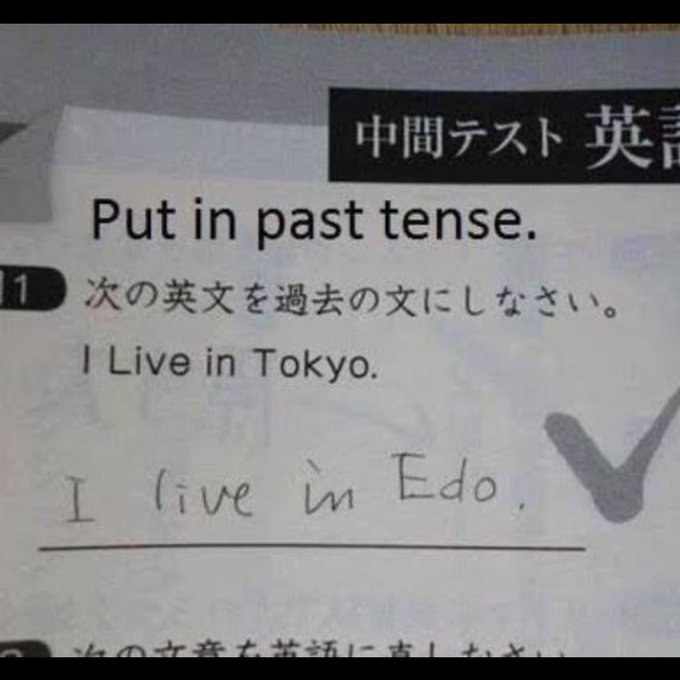 中間テスト 英語
Put in past tense.
1 次の英文を過去の文にしなさい。
I Live in Tokyo.
I live in Edo.
次の文章を英語に直しなさい